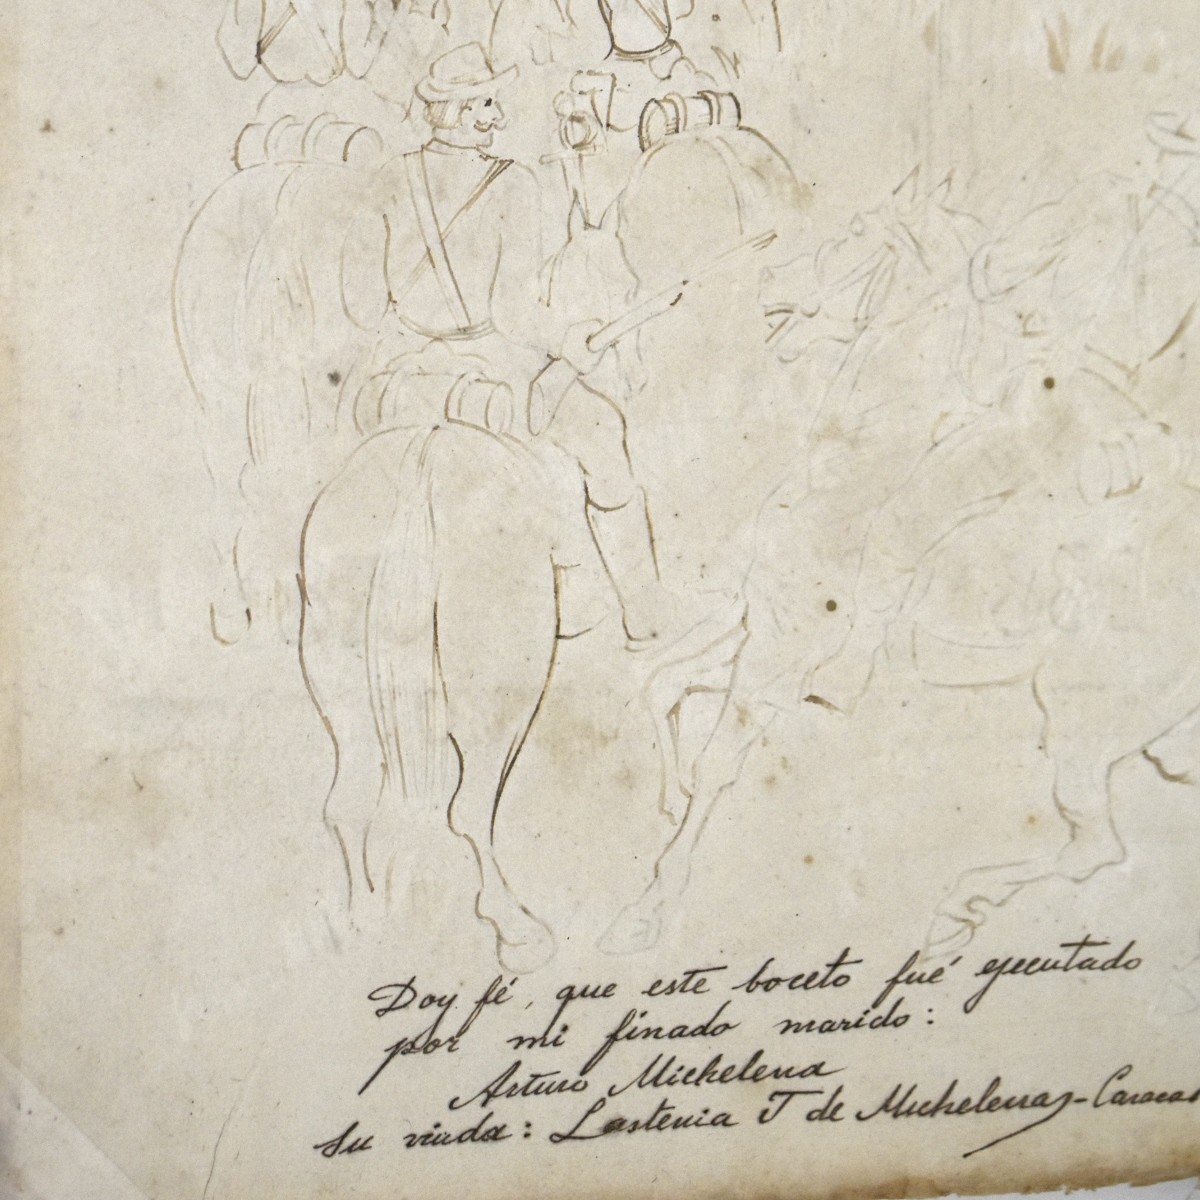 Doy fé, que este boceto fué ejecutado
por mi finado marido:
Arturo Michelena
Su viuda: Lastenia T de Michelena-Caracas